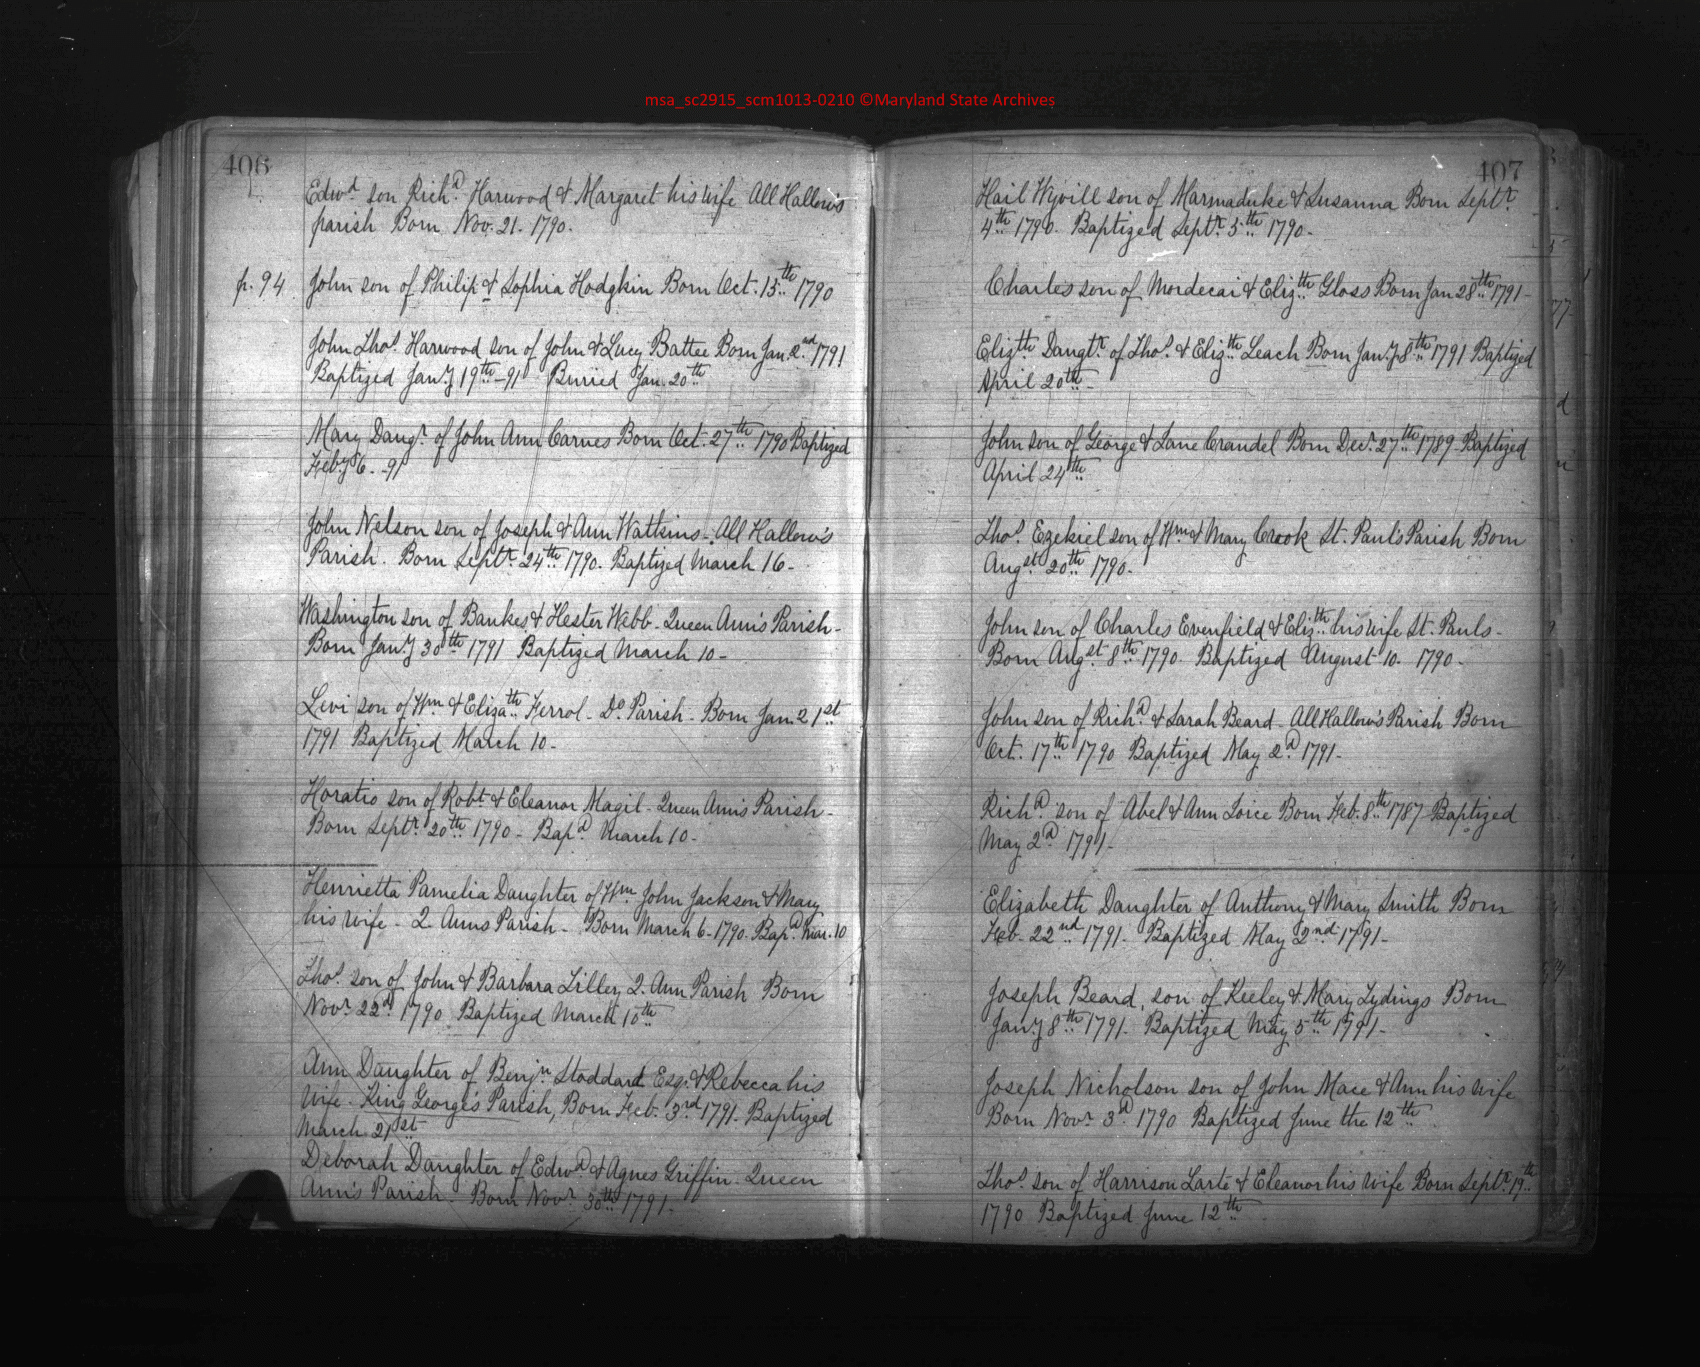 msa_sc2915_scm1013-0210 ©Maryland State Archives
406
Edwd son Richd Harwood & Margaret his wife All Hallow's
parish Born Nov. 21. 1790.
p. 94 John son of Philip & Sophia Hodgkin Born Oct. 15th 1790
John Thos. Harwood son of John & Lucy Battee Born Jan. 2nd 1791
Baptized Jany 19th -91 Buried Jan. 20th
Mary Daugr. of John Ann Carnes Born Oct. 27th 1790 Baptized
Feby 6. -91
John Nelson son of Joseph & Ann Watkins - All Hallow's
Parish. Born Septr. 24th 1790. Baptized March 16 -
Washington son of Bankes & Hester Webb - Queen Ann's Parish -
Born Jany 30th 1791 Baptized March 10 -
Levi son of Wm & Elizath Ferrol - Do Parish - Born Jan. 21st
1791 Baptized March 10 -
Horatio son of Robt & Eleanor Magil - Queen Ann's Parish -
Born Septr. 20th 1790 - Bapd March 10 -
Henrietta Pamelia Daughter of Wm John Jackson & Mary
his wife - Q. Anns Parish - Born March 6 - 1790. Bapd Mar. 10
Thos. son of John & Barbara Lilley Q. Ann Parish Born
Novr 22d 1790 Baptized March 10th
Ann Daughter of Benjn Stoddart Esq. & Rebecca his
wife - King George's Parish, Born Feb. 3rd 1791 - Baptized
March 21st
Deborah Daughter of Edwd & Agnes Griffin - Queen
Ann's Parish. Born Novr. 30th 1791.
407
Hail Wyvill son of Marmaduke & Susanna Born Septr.
4th 1790. Baptized Septr. 5th 1790.
Charles son of Mordecai & Elizth Gloss Born Jan 28th 1791 -
Elizth Daugtr. of Thos. & Elizth Leach Born Jany 8th 1791 Baptized
April 20th -
John son of George & Jane Crandel Born Decr. 27th 1789 - Baptized
April 24th
Thos. Ezekiel son of Wm & Mary Crook St. Paul's Parish Born
Augst 20th 1790.
John son of Charles Evenfield & Elizth his wife St. Pauls -
Born Augst 8th 1790. Baptized August 10. 1790 -
John son of Richd. & Sarah Beard - All Hallow's Parish Born
Oct. 17th 1790 Baptized May 2d 1791 -
Richd son of Abel & Ann Joice Born Feb. 8th 1787 Baptized
May 2d 1791 -
Elizabeth Daughter of Anthony & Mary Smith Born
Feb. 22nd 1791 - Baptized May 2nd 1791 -
Joseph Beard, son of Keeley & Mary Lydings Born
Jany 8th 1791 - Baptized May 5th 1791 -
Joseph Nicholson son of John Mace & Ann his wife
Born Novr. 3d 1790 Baptized June the 12th
Thos. son of Harrison Larte & Eleanor his wife Born Septr. 19th
1790 Baptized June 12th